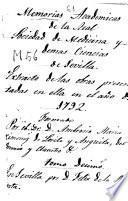 Memorias Academicas
de la Real
Sociedad de Medicina y
demas Ciencias
de Sevilla.
M56
Extracto de las obras presen
tadas en ella en el año de
1792.
Por el Dr. D. Ambrosio Maria
Ximenez de Lorite y
tomo Decimo
En Sevilla por D. Felix de la